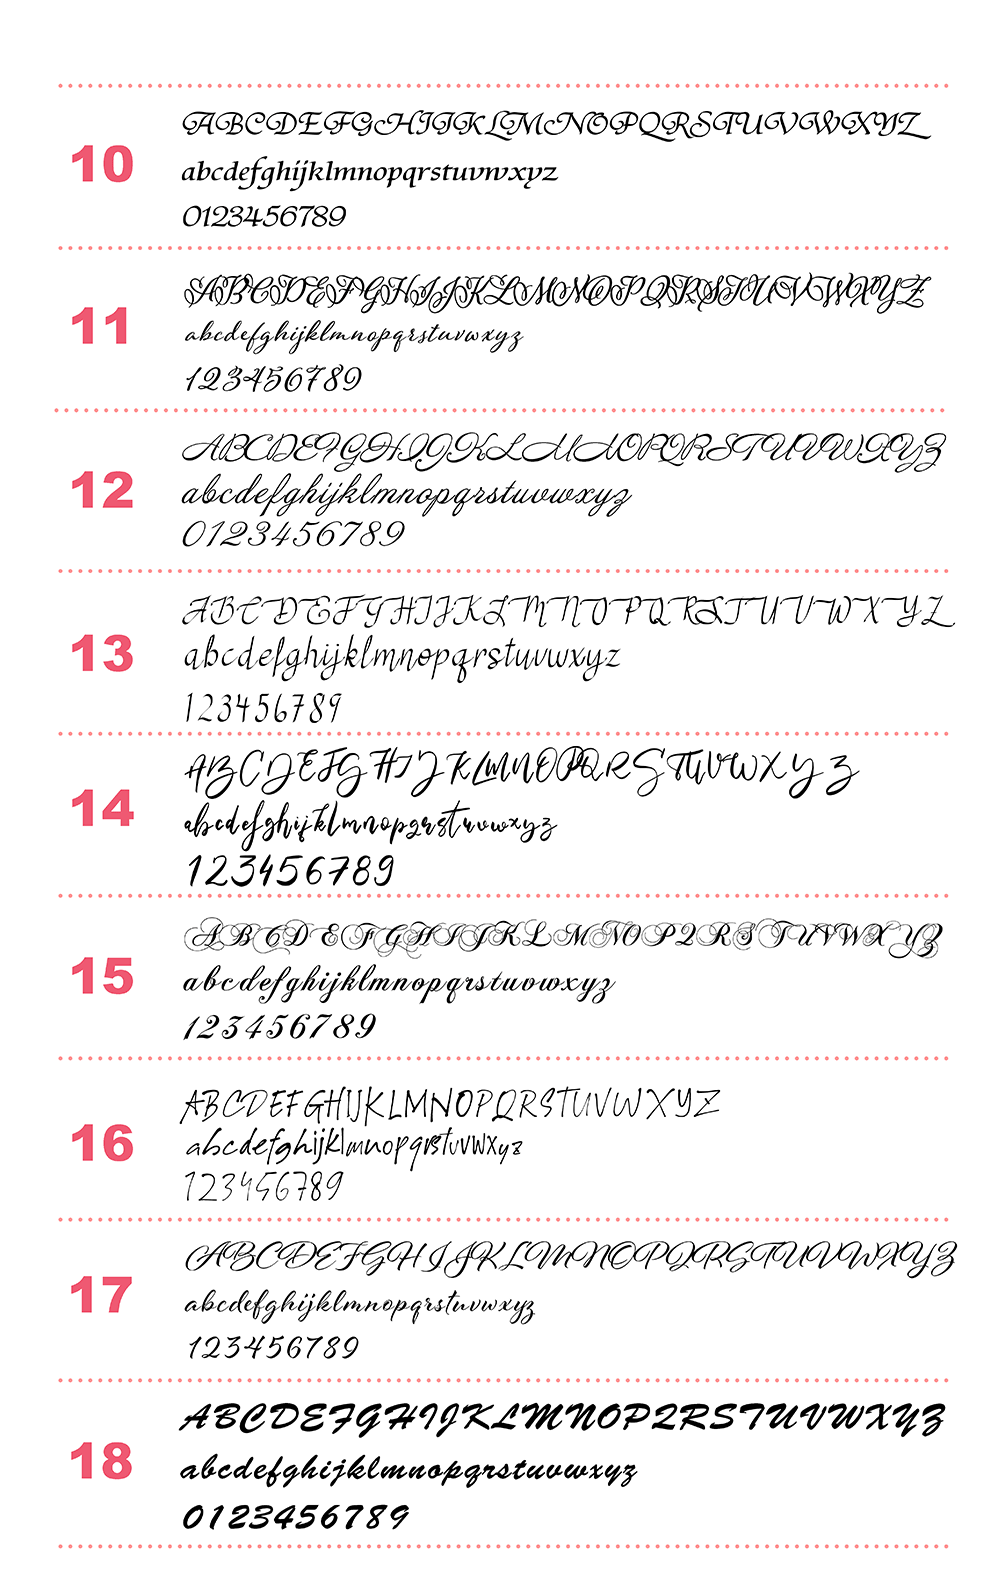 10
ABCDEFGHIJKLMNOPQRSTUVWXYZ
abcdefghijklmnopqrstuvwxyz
0123456789
11
ABCDEFGHIJKLMNOPQRSTUVWXYZ
abcdefghijklmnopqrstuvwxyz
123456789
12
ABCDEFGHIJKLMNOPQRSTUVWXYZ
abcdefghijklmnopqrstuvwxyz
0123456789
13
ABCDEFGHIJKLMNOPQRSTUVWXYZ
abcdefghijklmnopqrstuvwxyz
123456789
14
ABCDEFGHIJKLMNOPQRSTUVWXYZ
abcdefghijklmnopqrstuvwxyz
123456789
15
ABCDEFGHIJKLMNOPQRSTUVWXYZ
abcdefghijklmnopqrstuvwxyz
123456789
16
ABCDEFGHIJKLMNOPQRSTUVWXYZ
abcdefghijklmnopqrstuvwxyz
123456789
17
ABCDEFGHIJKLMNOPQRSTUVWXYZ
abcdefghijklmnopqrstuvwxyz
123456789
18
ABCDEFGHIJKLMNOPQRSTUVWXYZ
abcdefghijklmnopqrstuvwxyz
0123456789